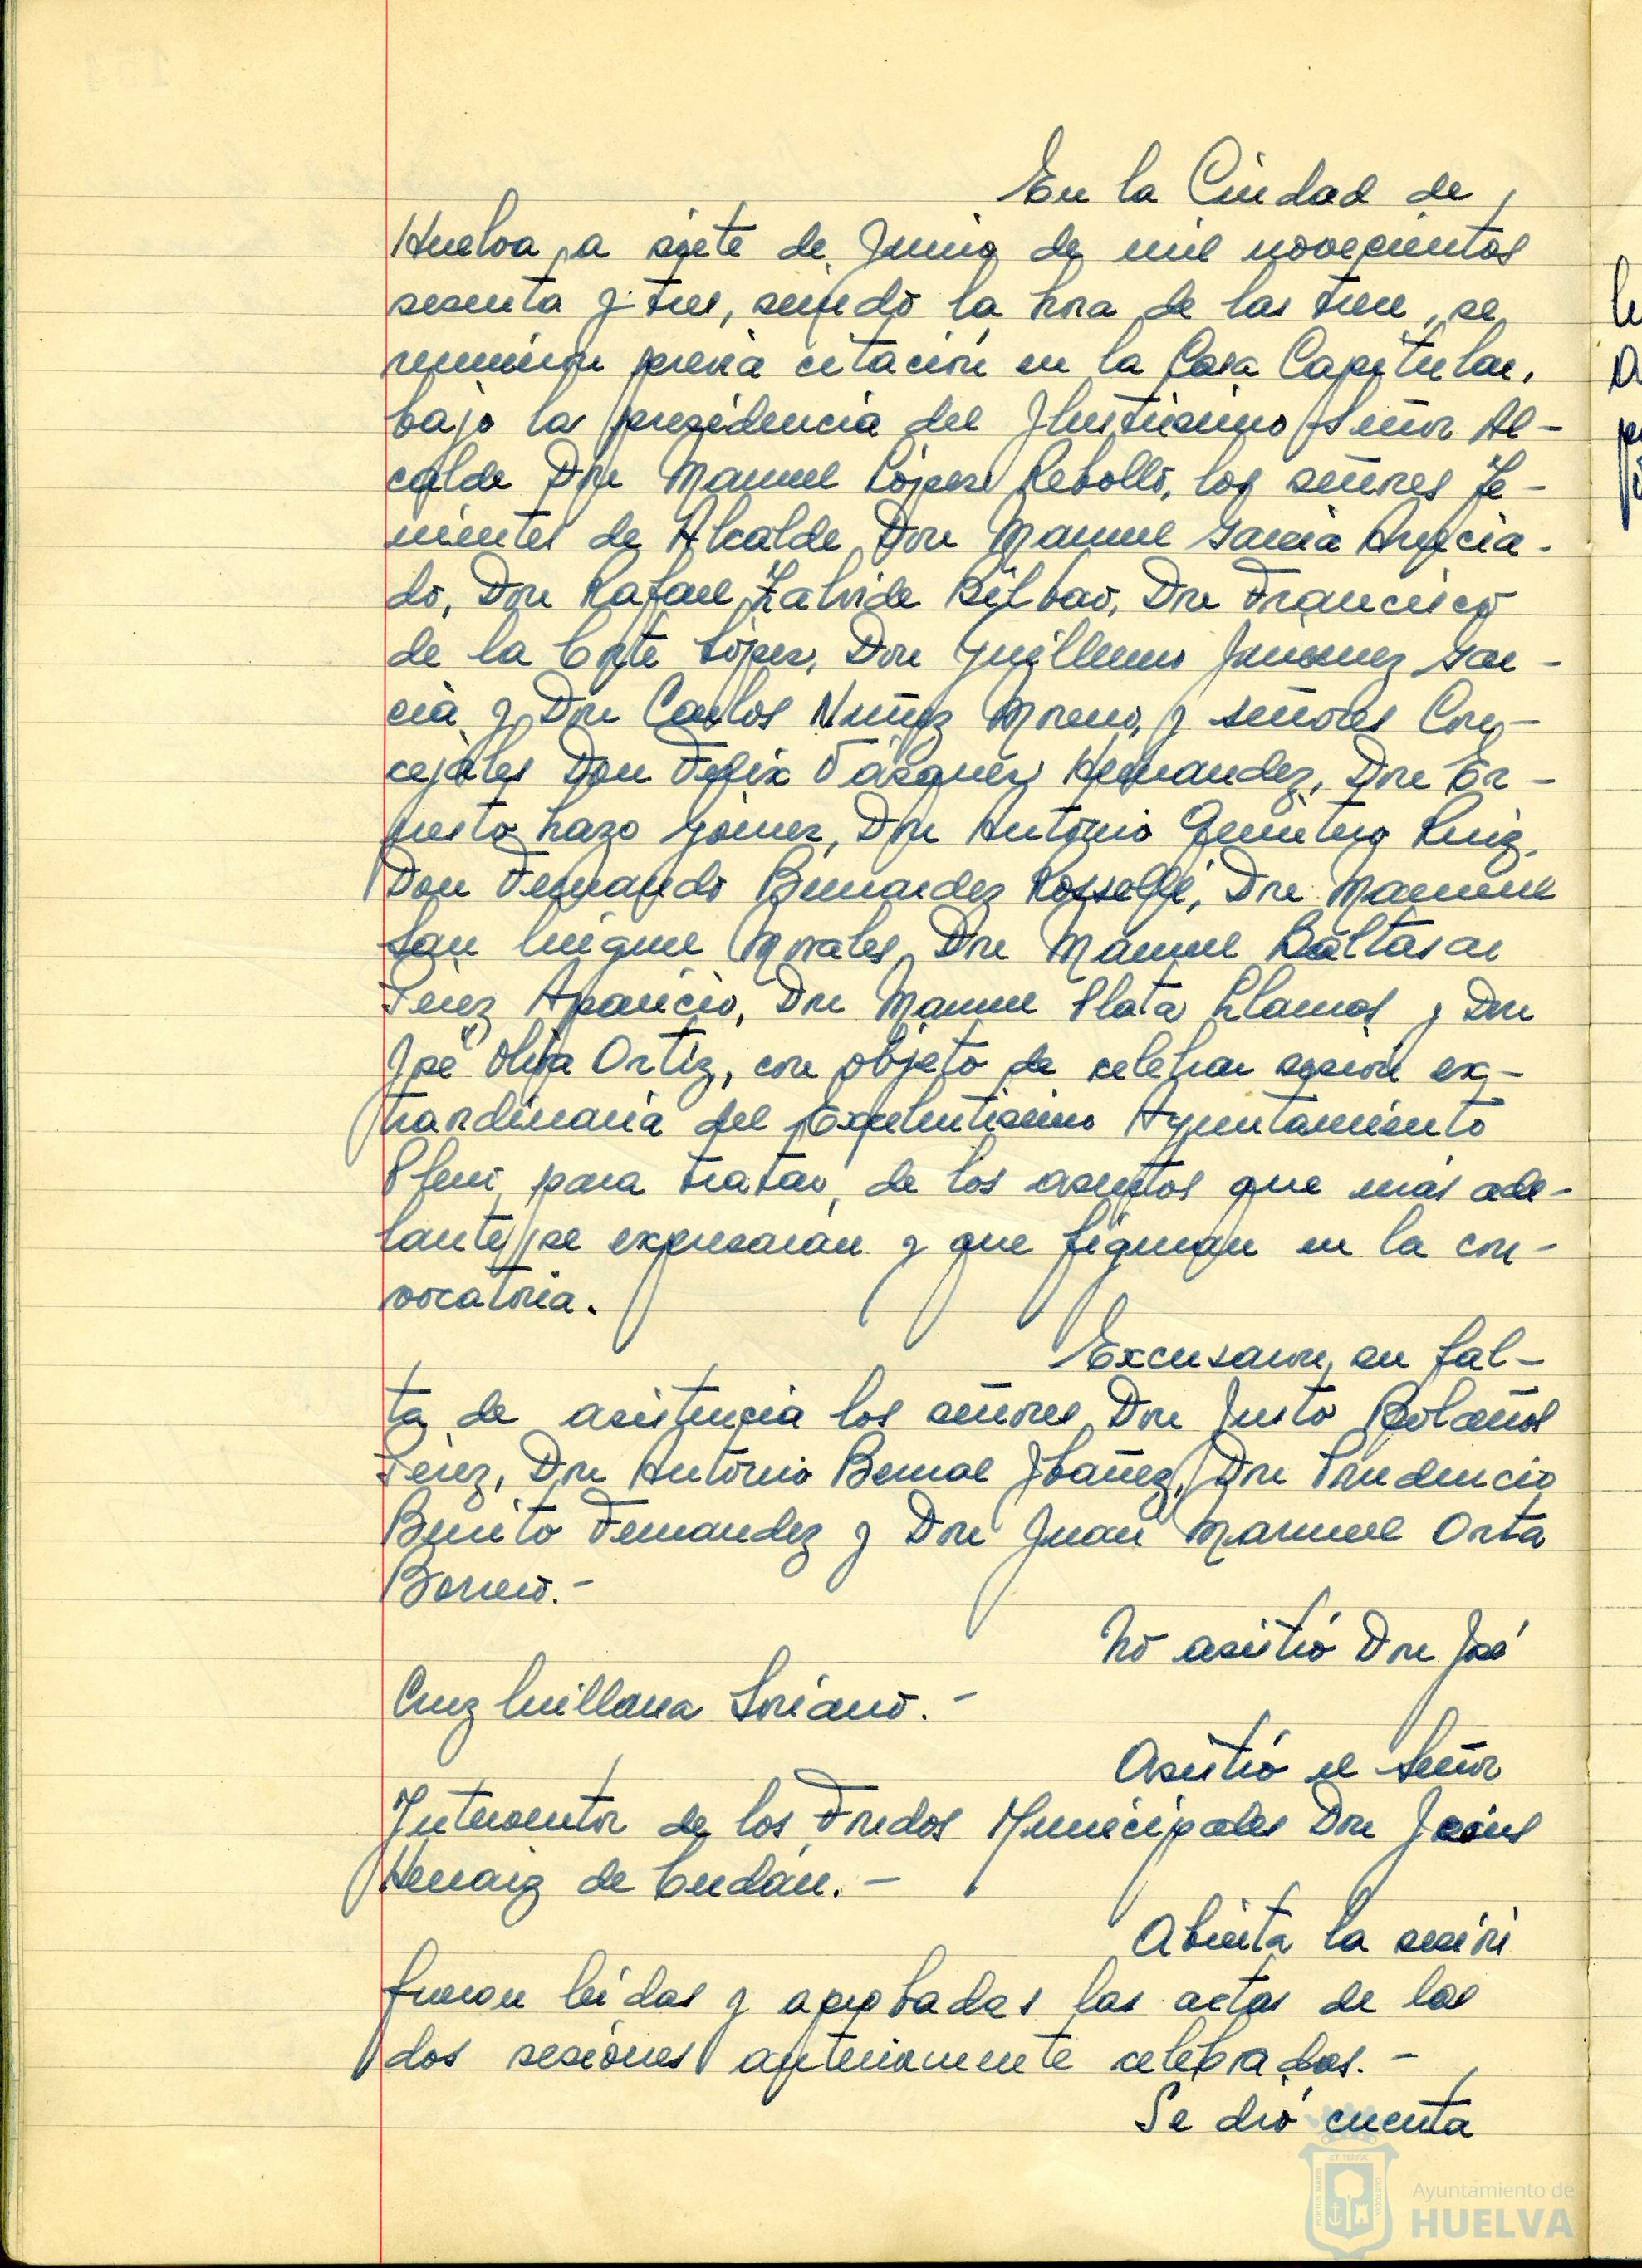 En la Ciudad de
Huelva, a siete de Junio de mil novecientos
sesenta y tres, siendo la hora de las trece, se
reunieron previa citación en la Casa Capitular,
bajo la presidencia del Ilustrisimo Señor Al-
calde Don Manuel López Rebollo, los señores Te-
nientes de Alcalde Don Manuel Garcia
do, Don Rafael Zalvide Bilbao, Don Francisco
de la Corte López, Don Guillermo Jimenez Gar-
cia y Don Carlos Nuñez Moreno, y señores Con-
cejales Don Felix Vázquez Hernandez, Don Er-
nesto Lazo Gómez, Don Antonio Quintero Ruiz,
Don Fernando Bernardez Don Manuel
San Miguel Morales, Don Manuel Baltasar
Pérez Aparicio, Don Manuel Plata Llamas y Don
José Oliva Ortiz, con objeto de celebrar sesión ex-
traordinaria del Excelentisimo Ayuntamiento
Pleno, para tratar, de los asuntos que más ade-
lante se expresarán y que figuran en la con-
vocatoria.
Excusaron, su fal-
ta de asistencia los señores Don Justo Bolaños
Pérez, Don Antonio Bernal Ibañez, Don Prudencio
Benito Fernandez y Don Juan Manuel Orta
Borrero.-
No asistió Don José
Cruz Millana Soriano.-
Asistió el Señor
Interventor de los Fondos Municipales Don Jesús
de Cerdán.-
Abierta la sesión
fueron leidas y aprobadas las actas de las
dos sesiones anteriormente celebradas.-
Se dió cuenta
Ayuntamiento de
HUELVA